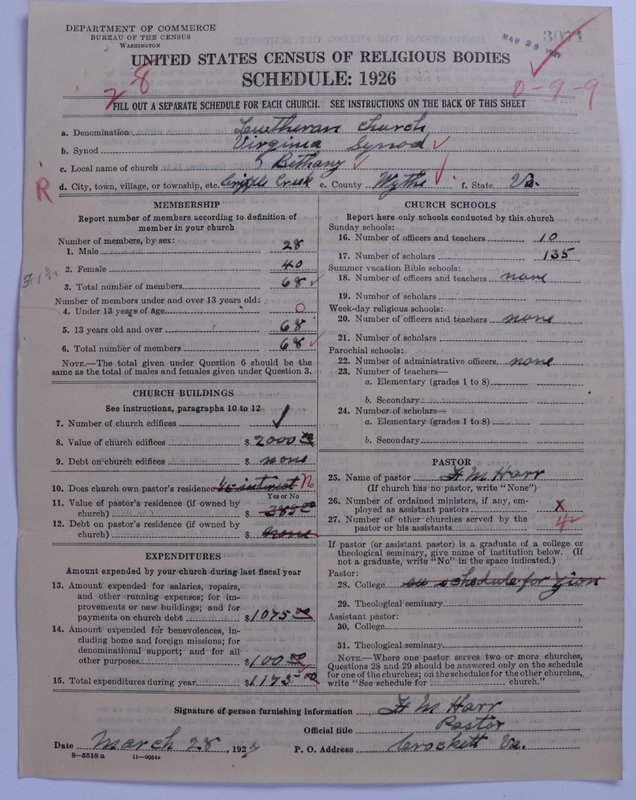 DEPARTMENT OF COMMERCE
BUREAU OF THE CENSUS
WASHINGTON
3071
MAR 29 1927
UNITED STATES CENSUS OF RELIGIOUS BODIES
SCHEDULE: 1926
28
0-9-9
FILL OUT A SEPARATE SCHEDULE FOR EACH CHURCH. SEE INSTRUCTIONS ON THE BACK OF THIS SHEET
a. Denomination Lutheran Church
b. Synod Virginia Synod
c. Local name of church Bethany
R
d. City, town, village, or township, etc. Cripple Creek e. County Wythe f. State Va.
MEMBERSHIP
Report number of members according to definition of
member in your church
Number of members, by sex:
1. Male 28
2. Female 40
3. Total number of members 68
Number of members under and over 13 years old:
4. Under 13 years of age 0
5. 13 years old and over 68
6. Total number of members 68
NOTE.—The total given under Question 6 should be the
same as the total of males and females given under Question 3.
CHURCH BUILDINGS
See instructions, paragraphs 10 to 12
7. Number of church edifices 1
8. Value of church edifices $ 2000 00
9. Debt on church edifices $ none
10. Does church own pastor's residence? 1/6 interest No
Yes or No
11. Value of pastor's residence (if owned by
church) $
12. Debt on pastor's residence (if owned by
church) $ none
EXPENDITURES
Amount expended by your church during last fiscal year
13. Amount expended for salaries, repairs,
and other running expenses; for im-
provements or new buildings; and for
payments on church debt $ 1075 00
14. Amount expended for benevolences, in-
cluding home and foreign missions; for
denominational support; and for all
other purposes $ 100 00
15. Total expenditures during year $ 1175 00
CHURCH SCHOOLS
Report here only schools conducted by this church
Sunday schools:
16. Number of officers and teachers 10
17. Number of scholars 135
Summer vacation Bible schools:
18. Number of officers and teachers none
19. Number of scholars
Week-day religious schools:
20. Number of officers and teachers none
21. Number of scholars
Parochial schools:
22. Number of administrative officers none
23. Number of teachers—
a. Elementary (grades 1 to 8)
b. Secondary
24. Number of scholars—
a. Elementary (grades 1 to 8)
b. Secondary
PASTOR
25. Name of pastor H M Harr
(If church has no pastor, write "None")
26. Number of ordained ministers, if any, em-
ployed as assistant pastors x
27. Number of other churches served by the
pastor or his assistants 4
If pastor (or assistant pastor) is a graduate of a college or
theological seminary, give name of institution below. (If
not a graduate, write "No" in the space indicated.)
Pastor:
28. College on schedule for Zion
29. Theological seminary
Assistant pastor:
30. College
31. Theological seminary
NOTE.—Where one pastor serves two or more churches,
Questions 28 and 29 should be answered only on the schedule
for one of the churches; on the schedules for the other churches,
write "See schedule for church."
Signature of person furnishing information H M Harr
Official title Pastor
Date March 28, 1927 P. O. Address Crockett Va.
8-5518a 11-9054a